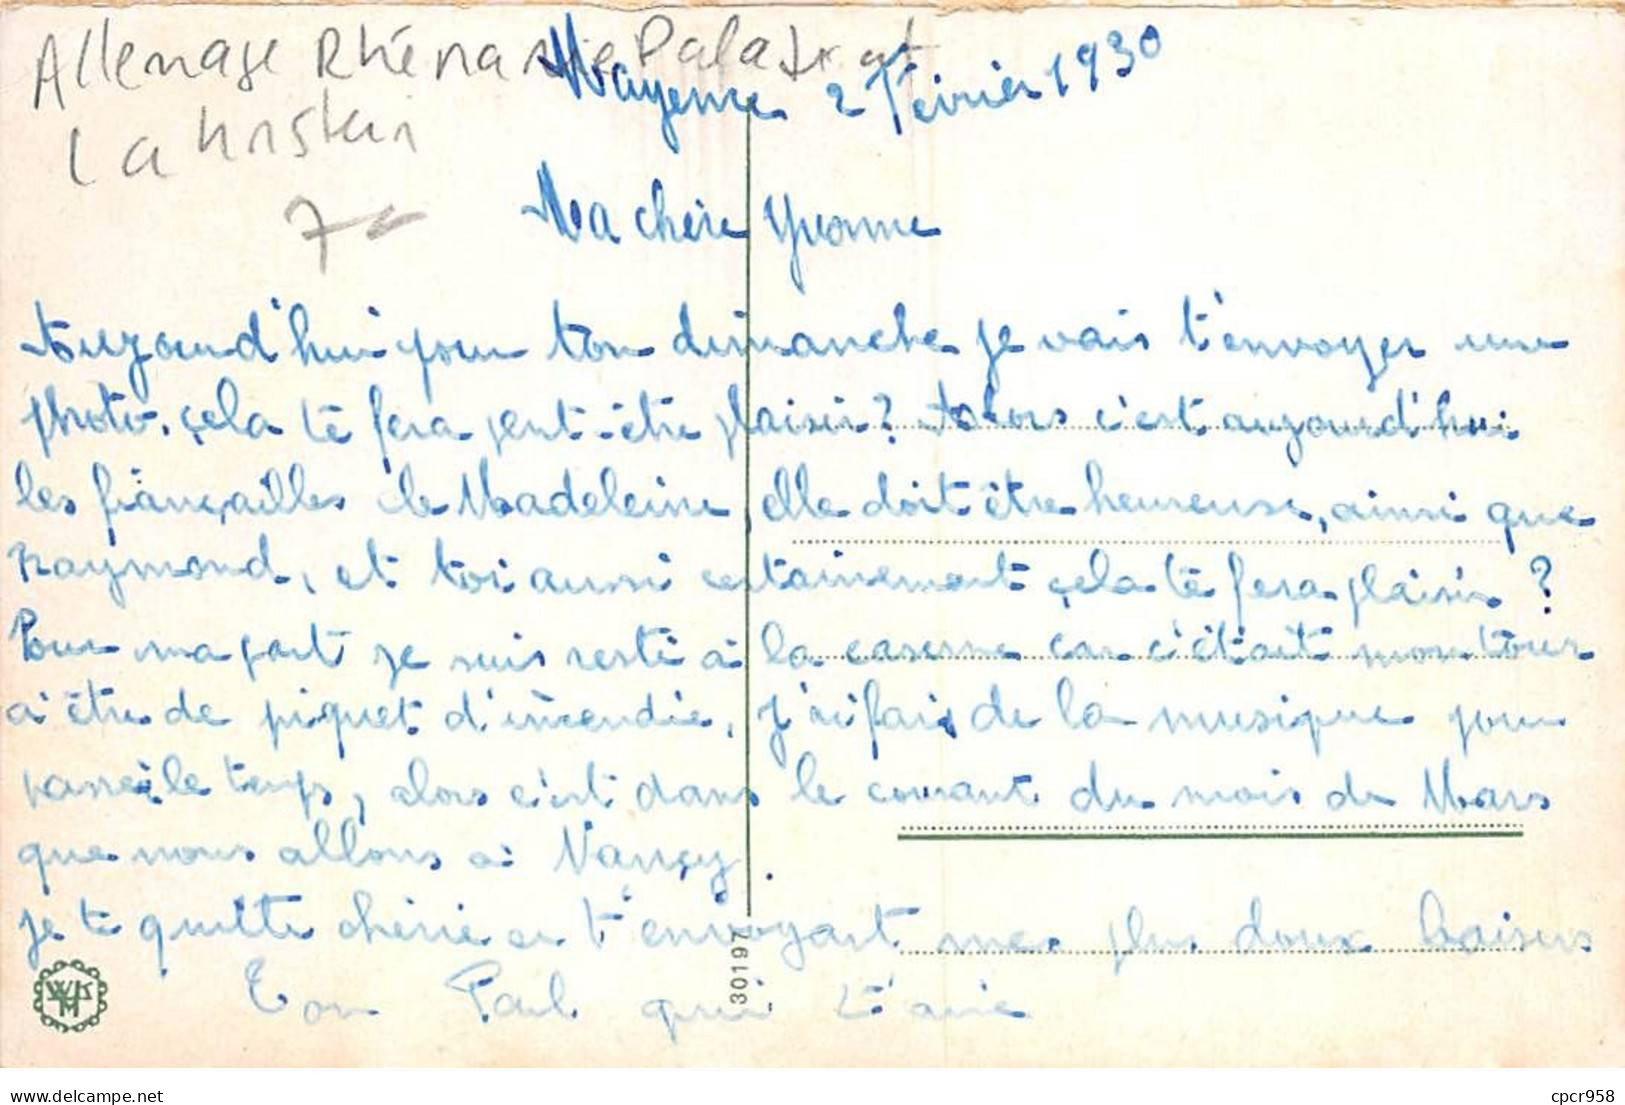 Allemage Rhénanie Palatinat
Lahnstein
7€
Mayence 2 Février 1930
Ma chère Yvonne
Aujourd'hui pour ton dimanche je vais t'envoyer une
photo, çela te fera peut-être plaisir? Alors c'est aujourd'hui
les fiançailles de Madeleine, elle doit être heureuse, ainsi que
Raymond, et toi aussi certainement çela te fera plaisir?
Pour ma part je suis resté à la caserne car c'était mon tour
a être de piquet d'incendie, j'ai fais de la musique pour
passer le temps, alors c'est dans le courant du mois de Mars
que nous allons a Nançy.
je te quitte chérie en t'envoyant mes plus doux baisers
Ton Paul qui t'aime
30197
WKM
www.delcampe.net
cpcr958